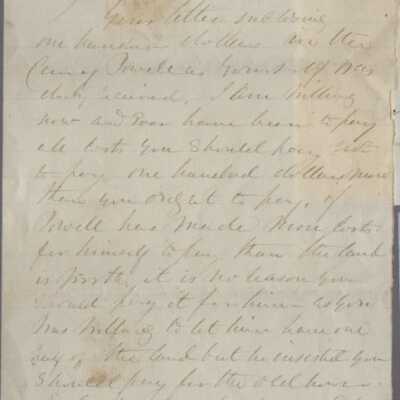 Your letter inclosing
one hundred dollars in the
Case of Powell vs Yours
duly received. I am willing
now and Ever have been to pay
all costs you should pay, not
to pay one hundred dollars more
than you ought to pay, if
Powell has made more costs
for himself to pay than the land
is worth, it is no reason you
should pay it for him as you
was willing to let him have one
of the land but he insisted you
should pay for the old